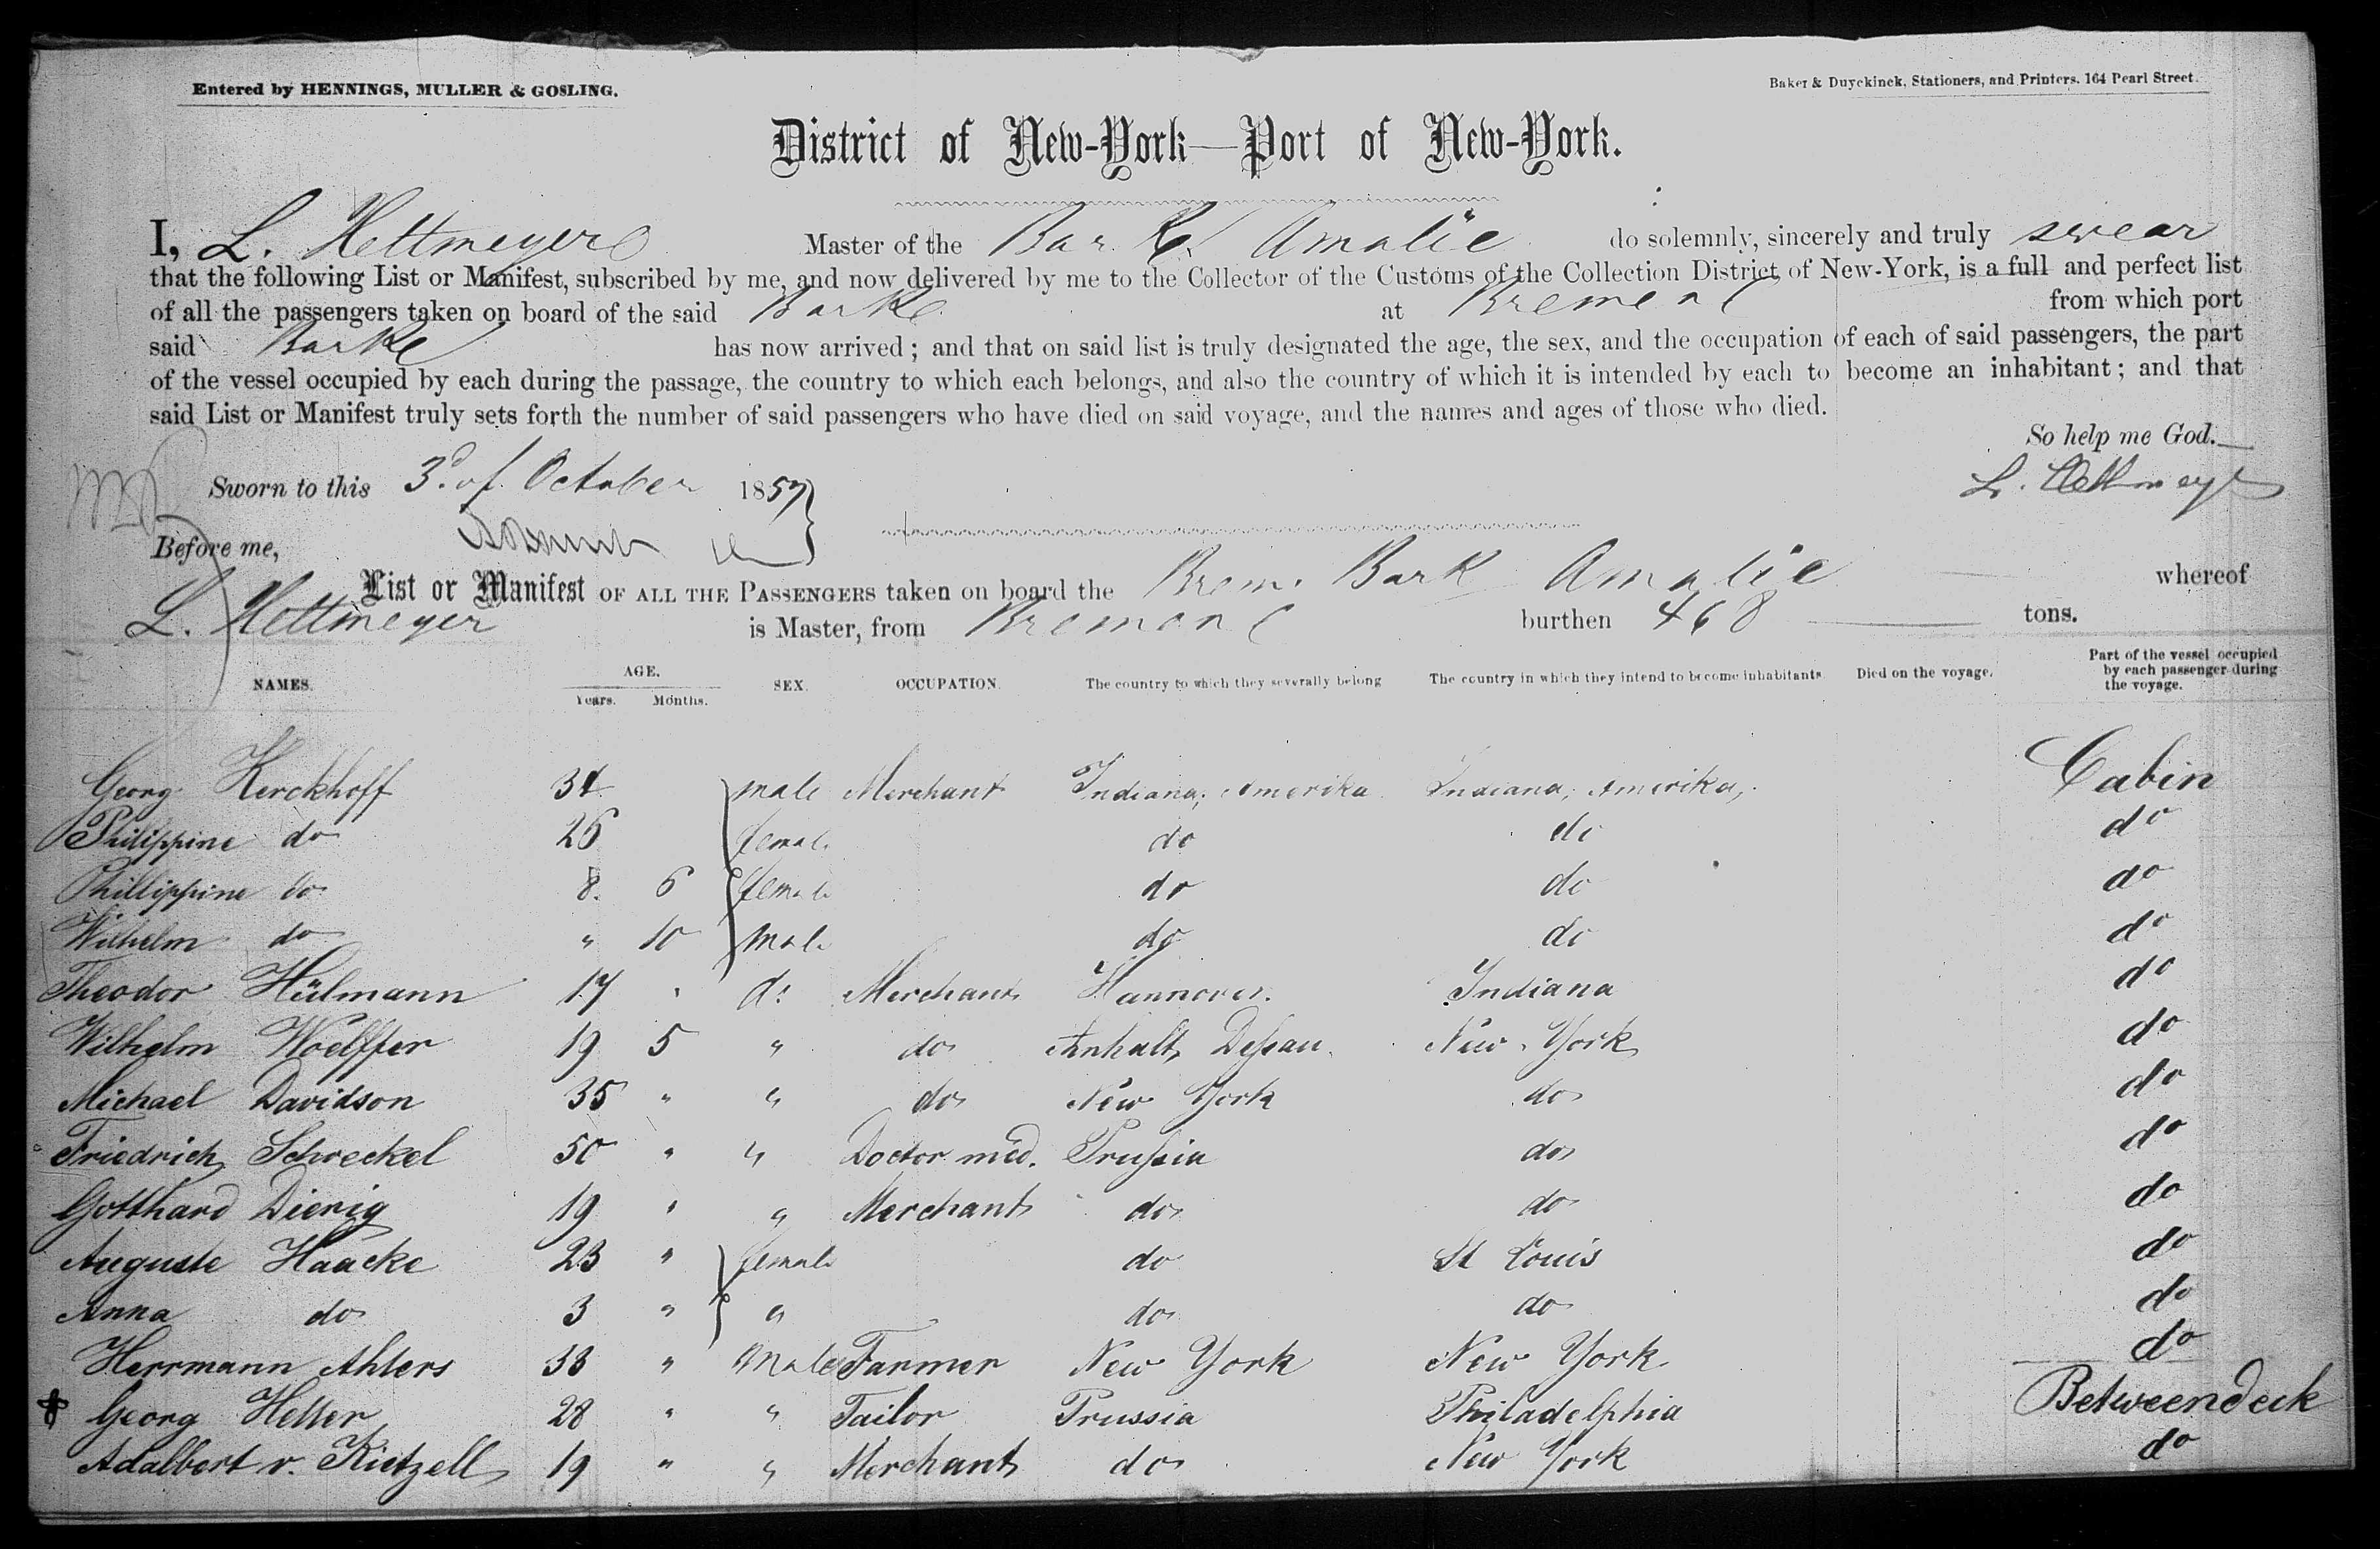 Entered by HENNINGS, MULLER & GOSLING.
Baker & Duyckinck, Stationers, and Printers. 164 Pearl Street.
District of New-York—Port of New-York.
I, L. Hettmeyer Master of the Bark Amalie do solemnly, sincerely and truly swear
that the following List or Manifest, subscribed by me, and now delivered by me to the Collector of the Customs of the Collection District of New-York, is a full and perfect list
of all the passengers taken on board of the said Barke at Bremen from which port
said Barke has now arrived; and that on said list is truly designated the age, the sex, and the occupation of each of said passengers, the part
of the vessel occupied by each during the passage, the country to which each belongs, and also the country of which it is intended by each to become an inhabitant; and that
said List or Manifest truly sets forth the number of said passengers who have died on said voyage, and the names and ages of those who died.
So help me God.
Sworn to this 3d of October 1857 L. Hettmeyer
Before me,
List or Manifest OF ALL THE PASSENGERS taken on board the Brem. Bark Amalie whereof
L. Hettmeyer is Master, from Bremen burthen 468 tons.
NAMES. AGE. Years. Months. SEX. OCCUPATION. The country to which they severally belong The country in which they intend to become inhabitants. Died on the voyage. Part of the vessel occupied by each passenger during the voyage.
Georg Kerckhoff 34 male Merchant Indiana, Amerika Indiana, Amerika, Cabin
Philippine do 26 female do do do
Phillippine do 8. 6 female do do do
Wilhelm do " 10 male do do do
Theodor Hülmann 17 " do Merchant Hannover. Indiana do
Wilhelm Woelffer 19 5 " do Anhalt Deßau. New York do
Michael Davidson 35 " " do New York do do
Friedrich Schweckel 50 " " Doctor med. Prußia do do
Gotthard Dierig 19 " " Merchant do do do
Auguste Haacke 23 " female do St Louis do
Anna do 3 " " do do do
Herrmann Ahlers 38 " Male Farmer New York New York do
Georg Heller 28 " " Tailor Prussia Philadelphia Betweendeck
Adalbert v. Kietzell 19 " " Merchant do New York do